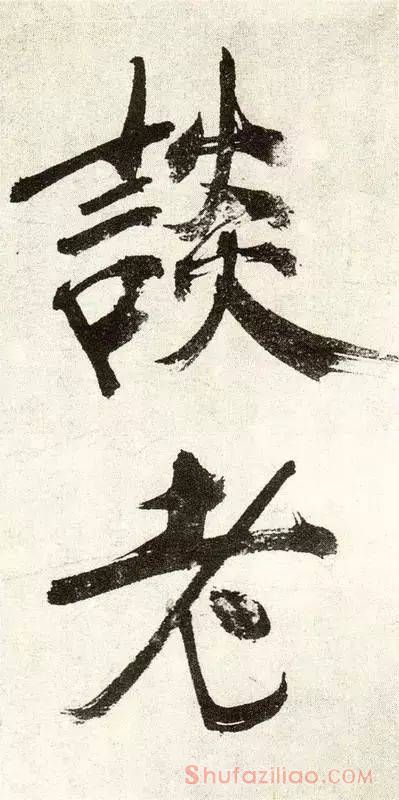 談老
Shufaziliao.COM